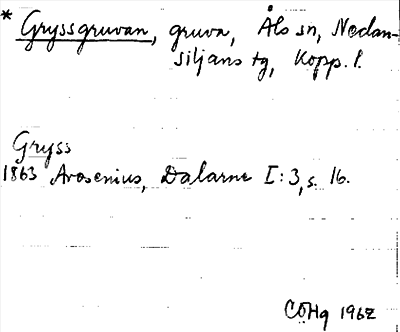 * Gryssgruvan, gruva, Åls sn, Nedan-
siljans tg, Kopp. l.
Gryss
1863 Arosenius, Dalarne I:3, s. 16.
CÖHg 1962